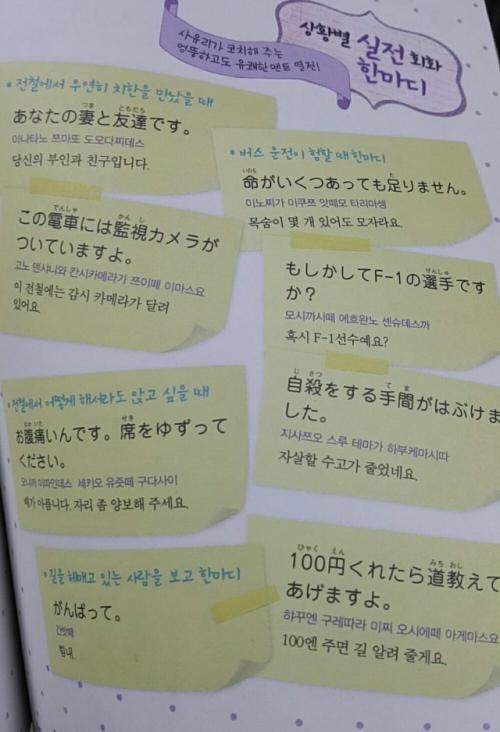 사유리가 코치해 주는
엉뚱하고도 유쾌한 멘트 열전!
상황별 실전 회화
한마디
• 전철에서 우연히 치한을 만났을 때
つま ともだち
あなたの妻と友達です。
아나타노 쯔마또 도모다찌데스
당신의 부인과 친구입니다.
でんしゃ かんし
この電車には監視カメラが
ついていますよ。
고노 덴샤니와 칸시카메라가 쯔이떼 이마스요
이 전철에는 감시 카메라가 달려
있어요.
• 버스 운전이 험할 때 한마디
いのち た
命がいくつあっても足りません。
이노찌가 이쿠쯔 앗떼모 타리마셍
목숨이 몇 개 있어도 모자라요.
せんしゅ
もしかしてF-1の選手です
か?
모시까시떼 에흐완노 센슈데스까
혹시 F-1선수예요?
じさつ てま
自殺をする手間がはぶけま
した。
지사쯔오 스루 테마가 하부케마시따
자살할 수고가 줄었네요.
• 전철에서 어떻게 해서라도 앉고 싶을 때
なかいた せき
お腹痛いんです。席をゆずって
ください。
오나까 이따인데스 세키오 유즛떼 구다사이
배가 아픕니다. 자리 좀 양보해 주세요.
• 길을 헤매고 있는 사람을 보고 한마디
がんばって。
간밧떼
힘내.
ひゃく えん みち おし
100円くれたら道教えて
あげますよ。
햐꾸엔 구레따라 미찌 오시에떼 아게마스요
100엔 주면 길 알려 줄게요.